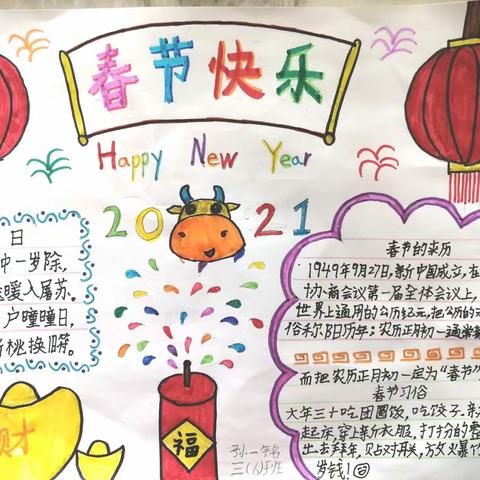 春节快乐
Happy New Year
2021
日
中一岁除,
送暖入屠苏。
户曈曈日,
新桃换旧符。
财
福
三(6)班
春节的来历
1949年9月27日,新中国成立,在
协商会议第一届全体会议上,
世界上通用的公历纪元,把公历的
俗称阳历年;农历正月初一通常
而把农历正月初一定为“春节”
春节习俗
大年三十吃团圆饭,吃饺子
起床,穿上新衣服,打扮的整
出去拜年,贴对联,放火暴竹
岁钱!